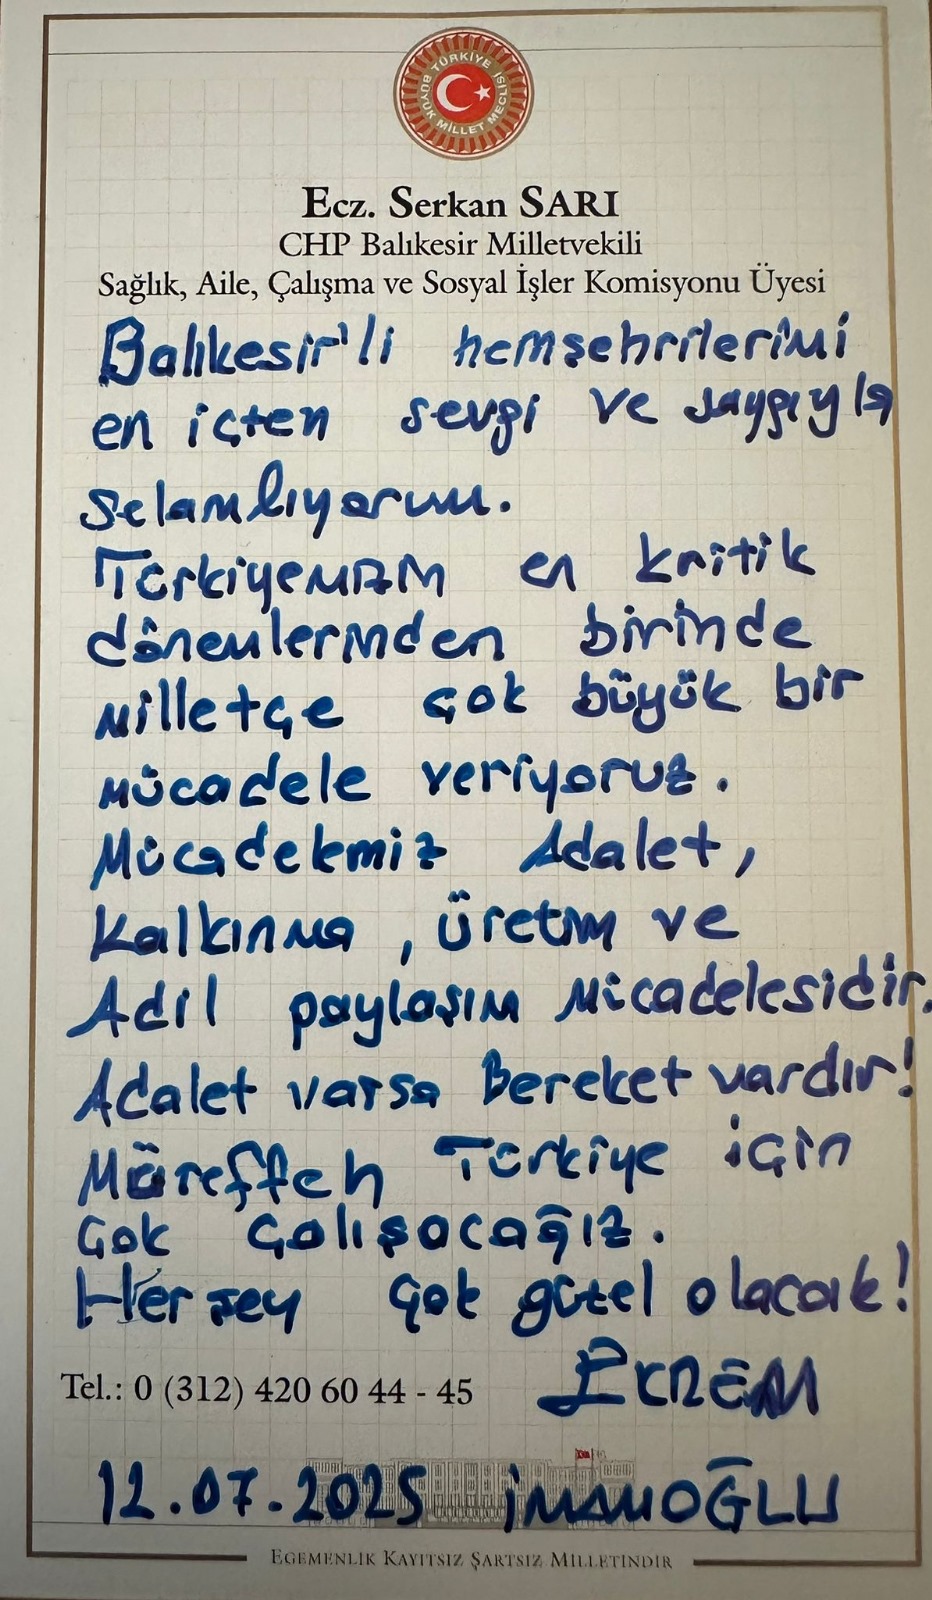 TÜRKİYE BÜYÜK MİLLET MECLİSİ
Ecz. Serkan SARI
CHP Balıkesir Milletvekili
Sağlık, Aile, Çalışma ve Sosyal İşler Komisyonu Üyesi
Balıkesir'li hemşehrilerimi
en içten sevgi ve saygıyla
selamlıyorum.
Türkiyemizin en kritik
dönemlerinden birinde
milletçe çok büyük bir
mücadele veriyoruz.
Mücadelemiz Adalet,
Kalkınma, üretim ve
Adil paylaşım mücadelesidir.
Adalet varsa Bereket vardır!
Müreffeh Türkiye için
Çok çalışacağız.
Herşey çok güzel olacak!
Tel.: 0 (312) 420 60 44 - 45 EKREM
12.07.2025 İMAMOĞLU
EGEMENLİK KAYITSIZ ŞARTSIZ MİLLETİNDİR